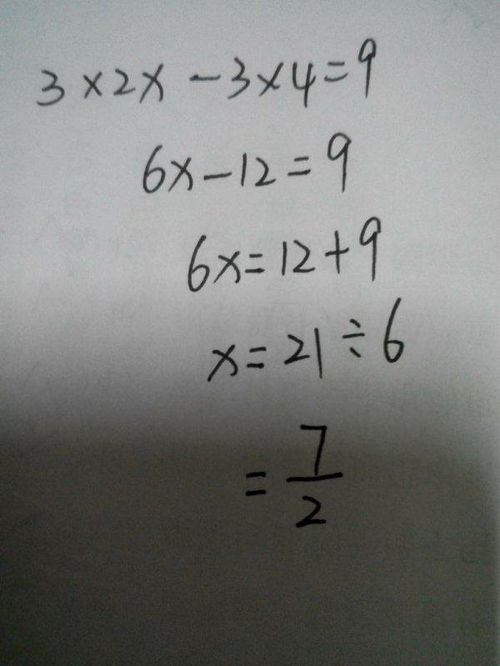 3×2x-3×4=9
6x-12=9
6x=12+9
x=21÷6
=7/2